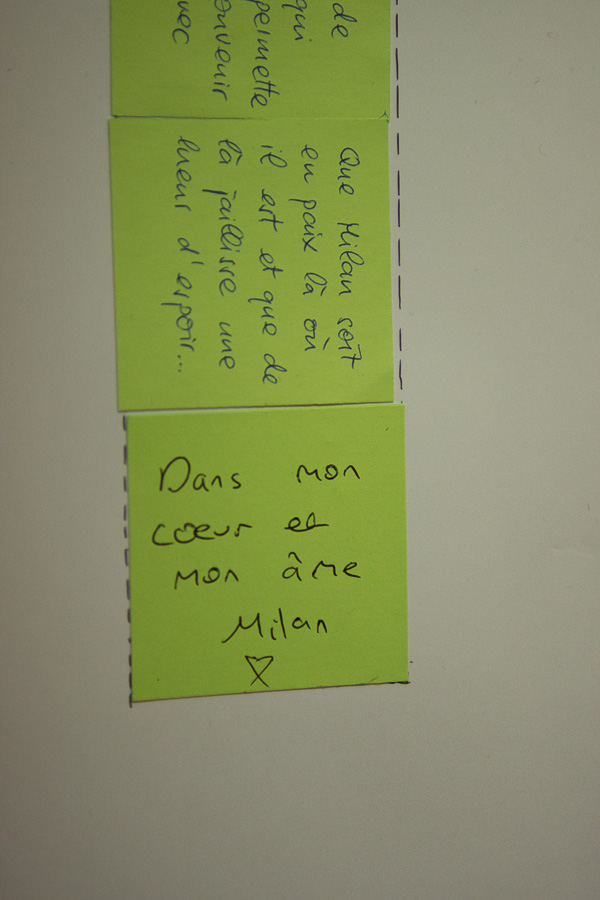 de
qui
permette
onvenir
vec
Que Milan soit
en paix là où
il est et que de
là jaillisse une
lueur d'espoir...
Dans mon
cœur et
mon âme
Milan